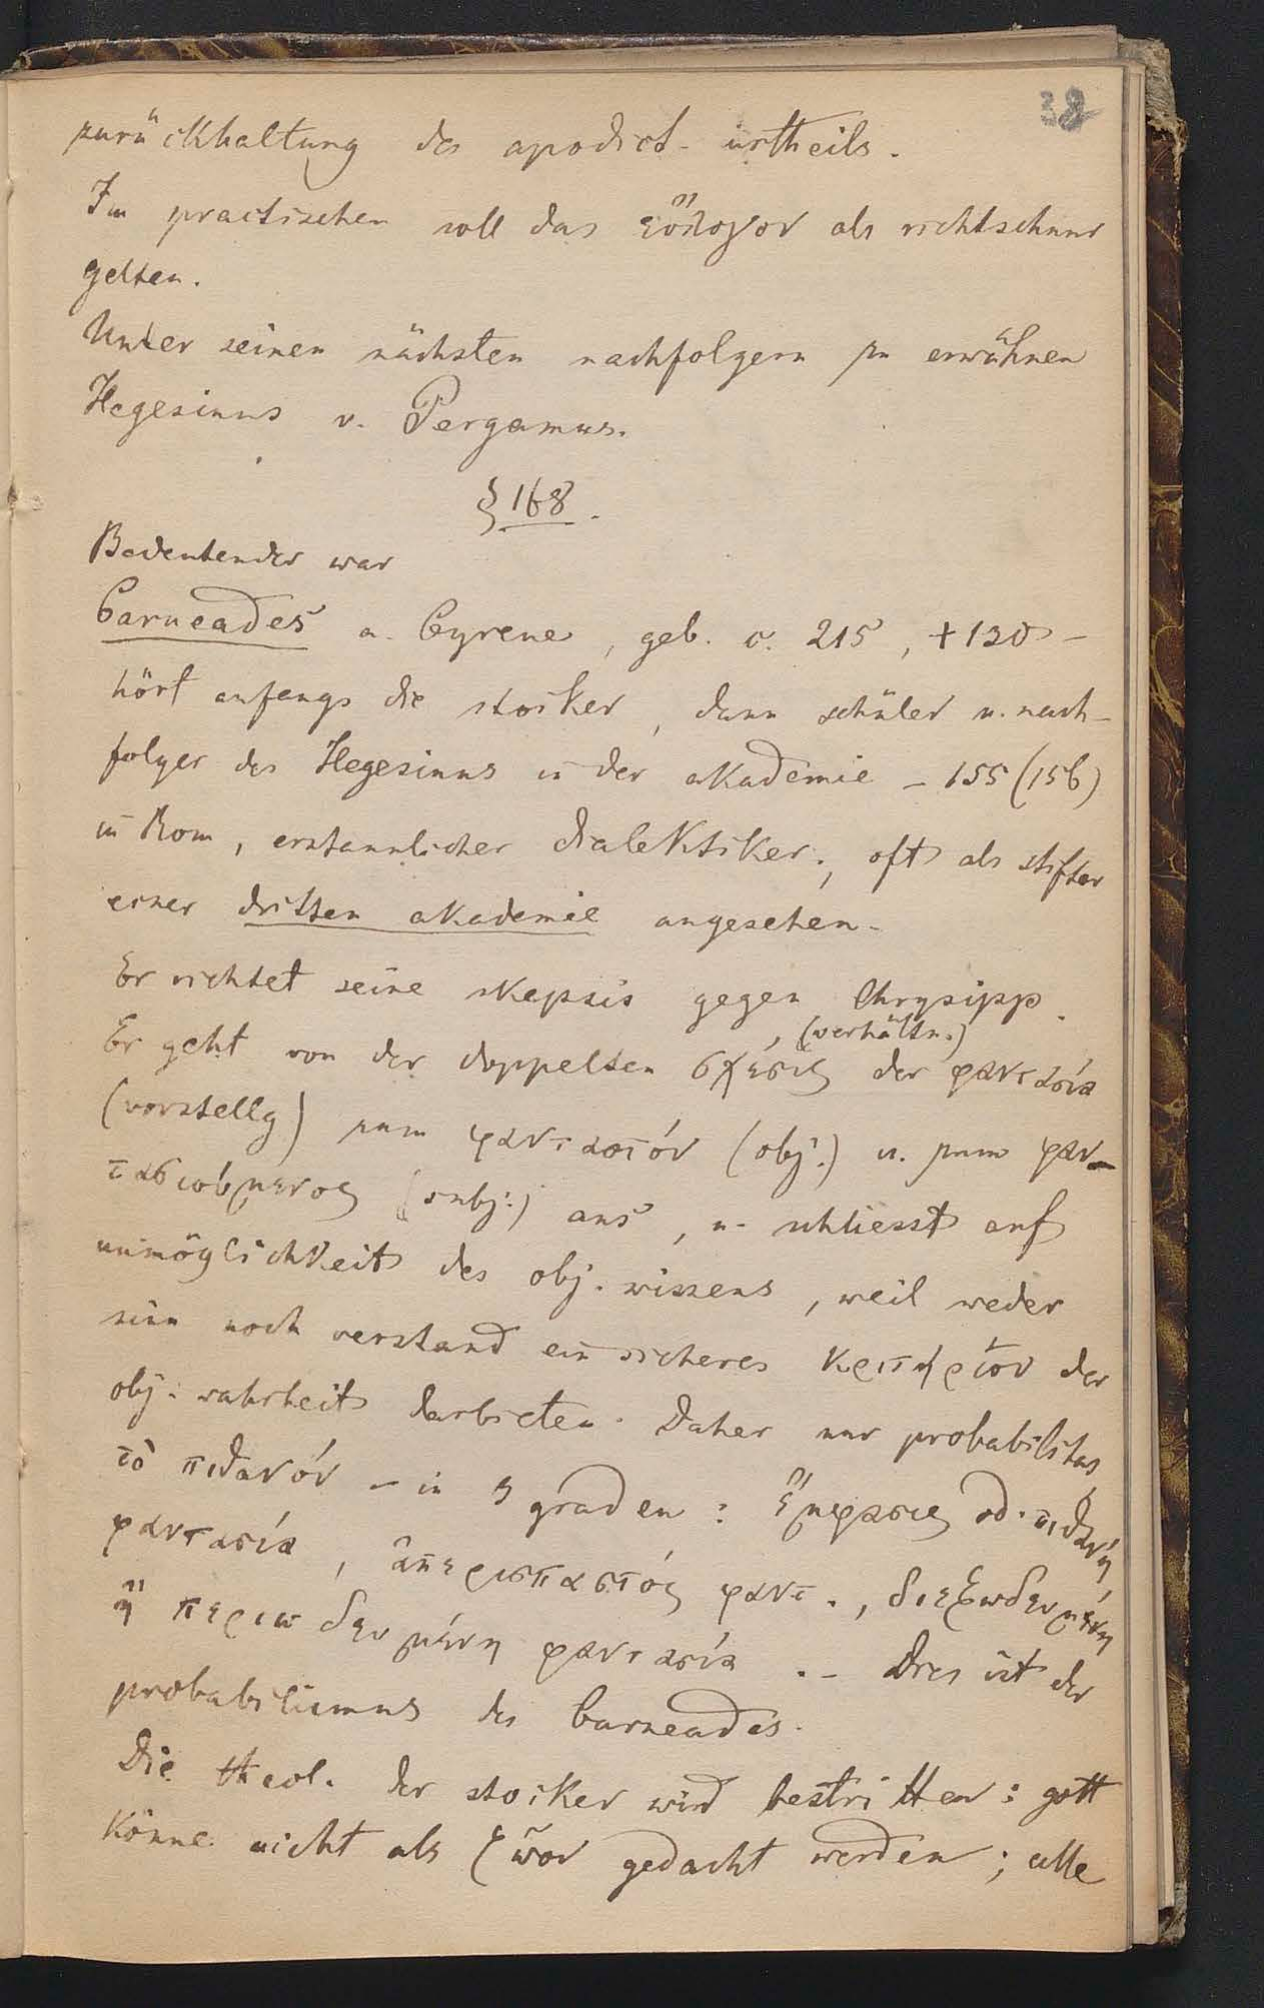 38
zurückhaltung des apodict. urtheils.
Im practischen soll das εὔλογον als richtschnur
gelten.
Unter seinen nächsten nachfolgern zu erwähnen
Hegesinus v. Pergamus.
§ 168.
Bedeutender war
Carneades a. Cyrene, geb. c. 215, +130 –
hört anfangs die stoiker, dann schüler u. nach-
folger des Hegesinus in der akademie – 155 (156)
in Rom, erstaunlicher dialektiker., oft als stifter
einer dritten akademie angesehen.
Er richtet seine skepsis gegen Chrysipp.
(verhältn.)
Er geht von der doppelten σχέσις der φαντασία
(vorstellg) zum φανταστόν (obj.) u. zum φαν-
τασιούμενος (subj.) aus, u. schliesst auf
unmöglichkeit des obj. wissens, weil weder
sinn noch verstand ein sicheres κριτήριον der
obj. wahrheit darbieten. Daher nur probabilitas,
τὸ πιθανόν – in 3 graden: ἔμφασις od. πιθανή
φαντασία, ἀπερισπαστός φαντ., διεξωδευμένη
ἢ περιωδευμένη φαντασία. – Dies ist der
probabilismus des Carneades.
Die theol. der stoiker wird bestritten: gott
könne nicht als ζῶον gedacht werden; alle